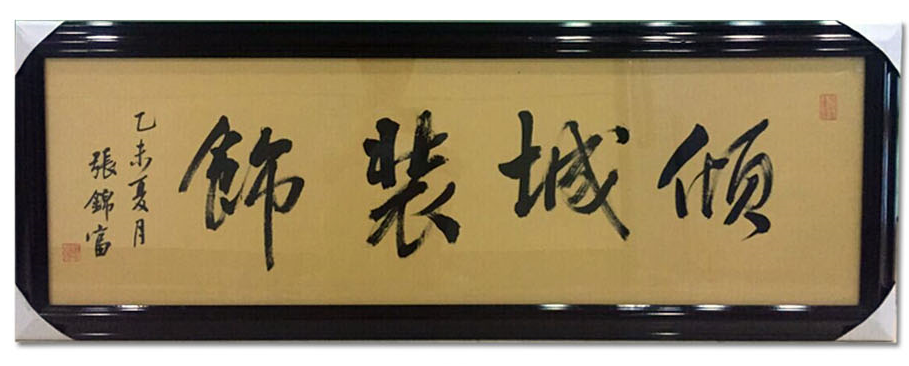 傾城裝飾
乙未夏月
張錦富